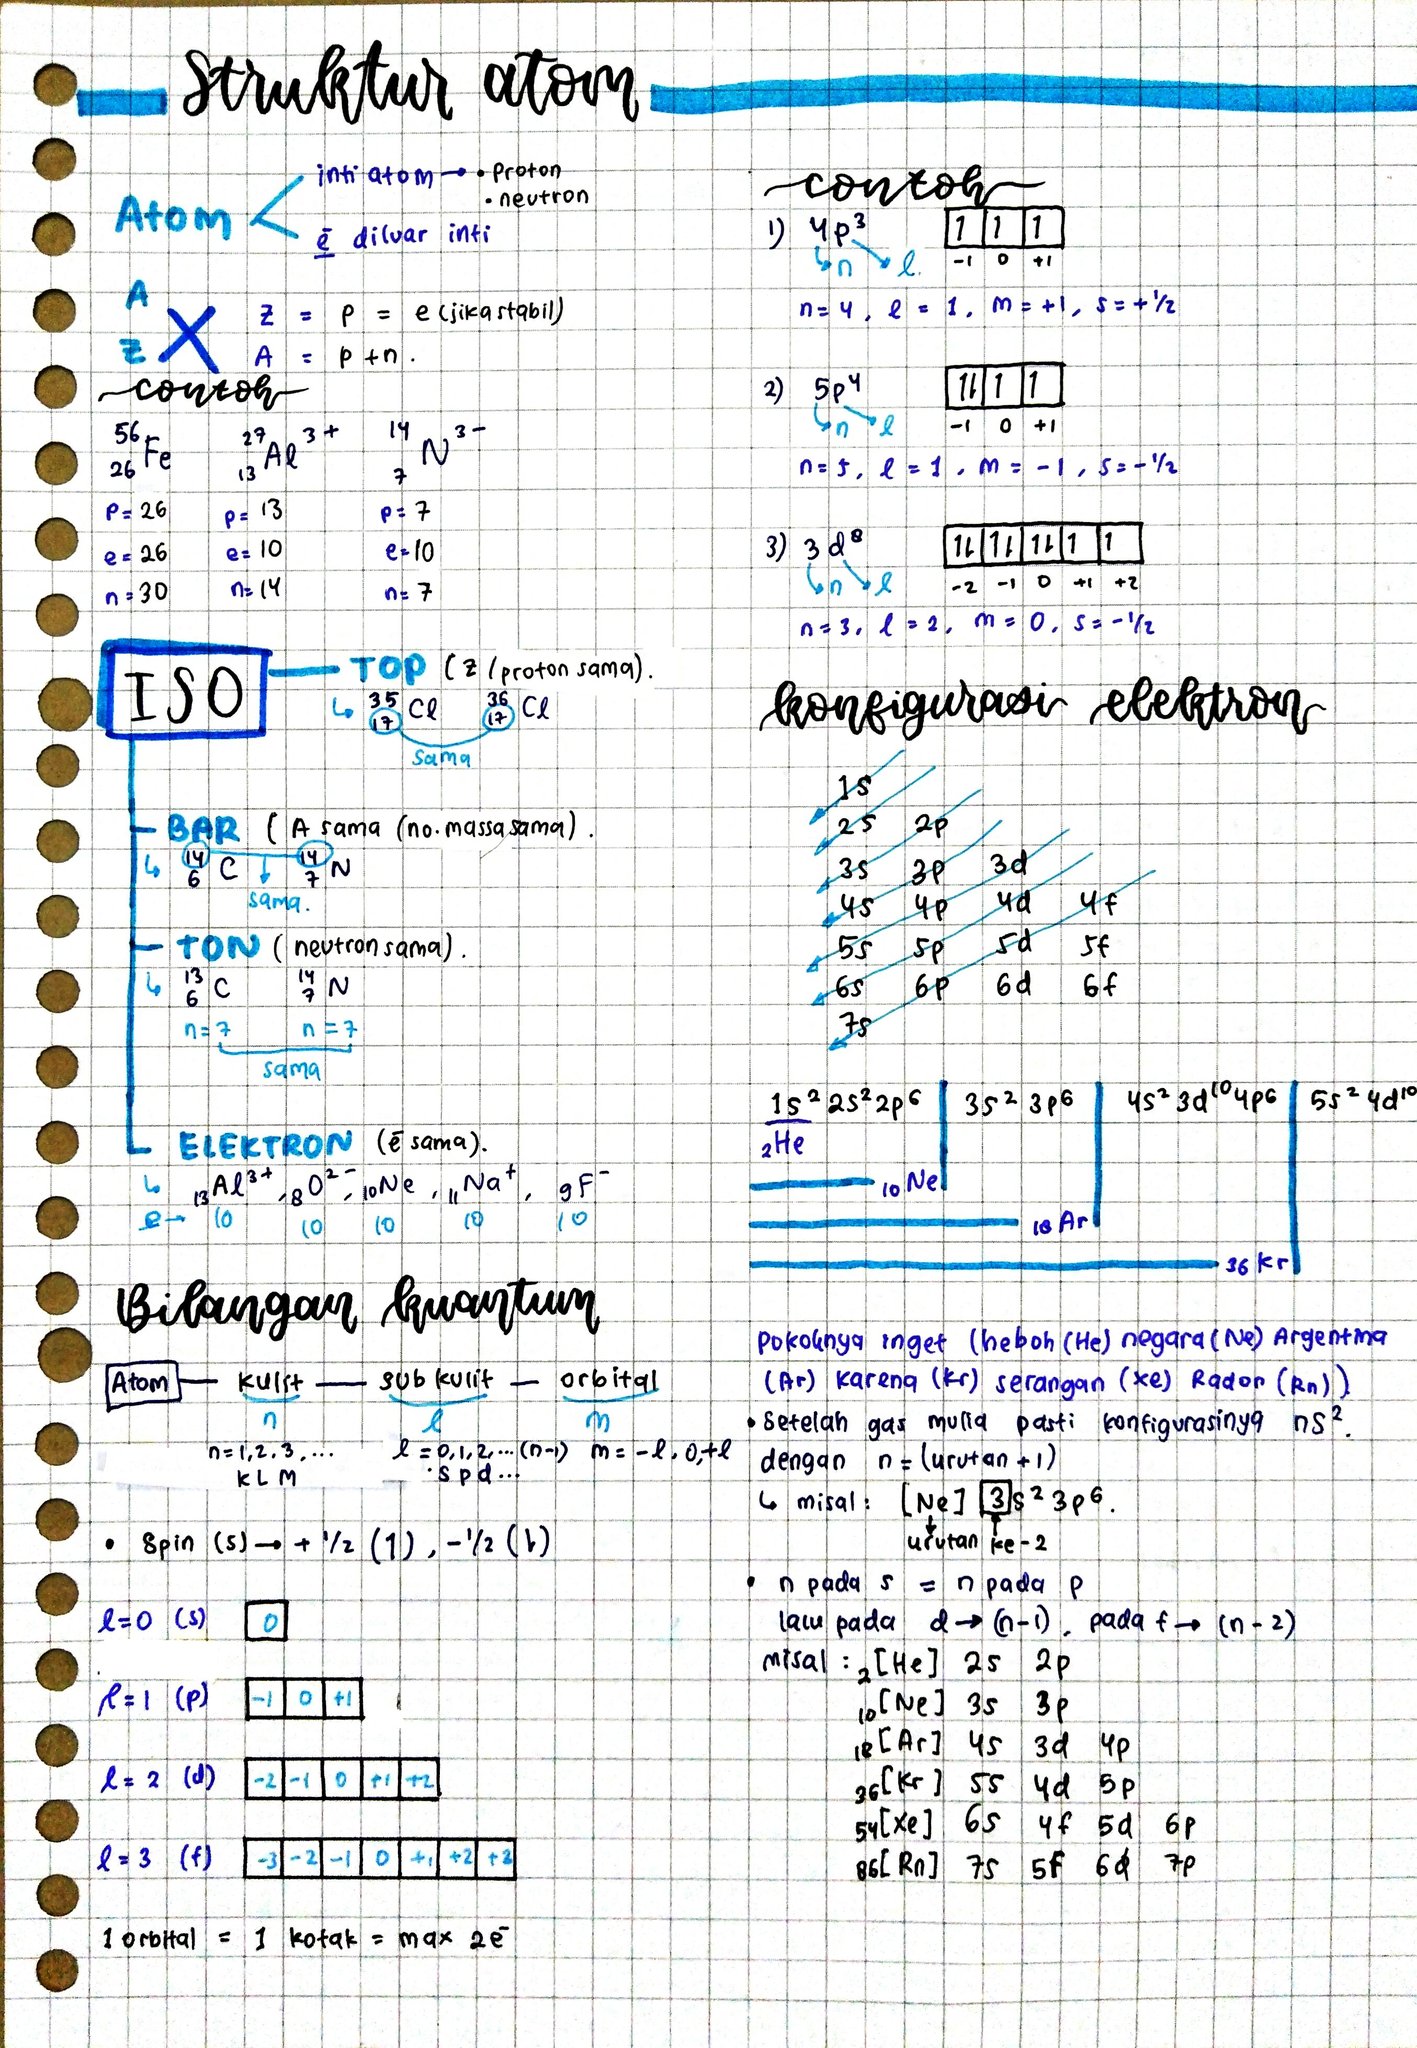 Struktur atom
Atom
inti atom → • proton
• neutron
ē diluar inti
A
Z X
Z = p = e (jika stabil)
A = p + n.
contoh
⁵⁶₂₆Fe ²⁷₁₃Al³⁺ ¹⁴₇N³⁻
p = 26 p = 13 p = 7
e = 26 e = 10 e = 10
n = 30 n = 14 n = 7
ISO
TOP (Z / proton sama).
↳ ³⁵₁₇Cl ³⁶₁₇Cl
sama
BAR (A sama (no. massa sama).
↳ ¹⁴₆C ¹⁴₇N
sama.
TON (neutron sama).
↳ ¹³₆C ¹⁴₇N
n = 7 n = 7
sama
ELEKTRON (ē sama).
↳ ₁₃Al³⁺, ₈O²⁻, ₁₀Ne, ₁₁Na⁺, ₉F⁻
e → 10 10 10 10 10
Bilangan kuantum
Atom — kulit — sub kulit — orbital
n l m
n = 1, 2, 3, ... l = 0, 1, 2, ... (n-1) m = -l, 0, +l
K L M s p d ...
• Spin (s) → + 1/2 (1), -1/2 (⇂)
l = 0 (s) 0
l = 1 (p) -1 0 +1
l = 2 (d) -2 -1 0 +1 +2
l = 3 (f) -3 -2 -1 0 +1 +2 +3
1 orbital = 1 kotak = max 2ē
contoh
1) 4p³ 1 1 1
n l. -1 0 +1
n = 4, l = 1, m = +1, s = +1/2
2) 5p⁴ 1⇂ 1 1
n l -1 0 +1
n = 5, l = 1, m = -1, s = -1/2
3) 3d⁸ 1⇂ 1⇂ 1⇂ 1 1
n l -2 -1 0 +1 +2
n = 3, l = 2, m = 0, s = -1/2
konfigurasi elektron
1s
2s 2p
3s 3p 3d
4s 4p 4d 4f
5s 5p 5d 5f
6s 6p 6d 6f
7s
1s² 2s² 2p⁶ 3s² 3p⁶ 4s² 3d¹⁰ 4p⁶ 5s² 4d¹⁰
₂He
₁₀Ne
₁₈Ar
₃₆Kr
Pokoknya inget (heboh (He) negara (Ne) Argentina
(Ar) karena (Kr) serangan (Xe) Rador (Rn))
• Setelah gas mulia pasti konfigurasinya ns².
dengan n = (urutan + 1)
↳ misal: [Ne] 3s² 3p⁶.
urutan ke-2
• n pada s = n pada p
lalu pada d → (n-1), pada f → (n-2)
misal: ₂[He] 2s 2p
₁₀[Ne] 3s 3p
₁₈[Ar] 4s 3d 4p
₃₆[Kr] 5s 4d 5p
₅₄[Xe] 6s 4f 5d 6p
₈₆[Rn] 7s 5f 6d 7p